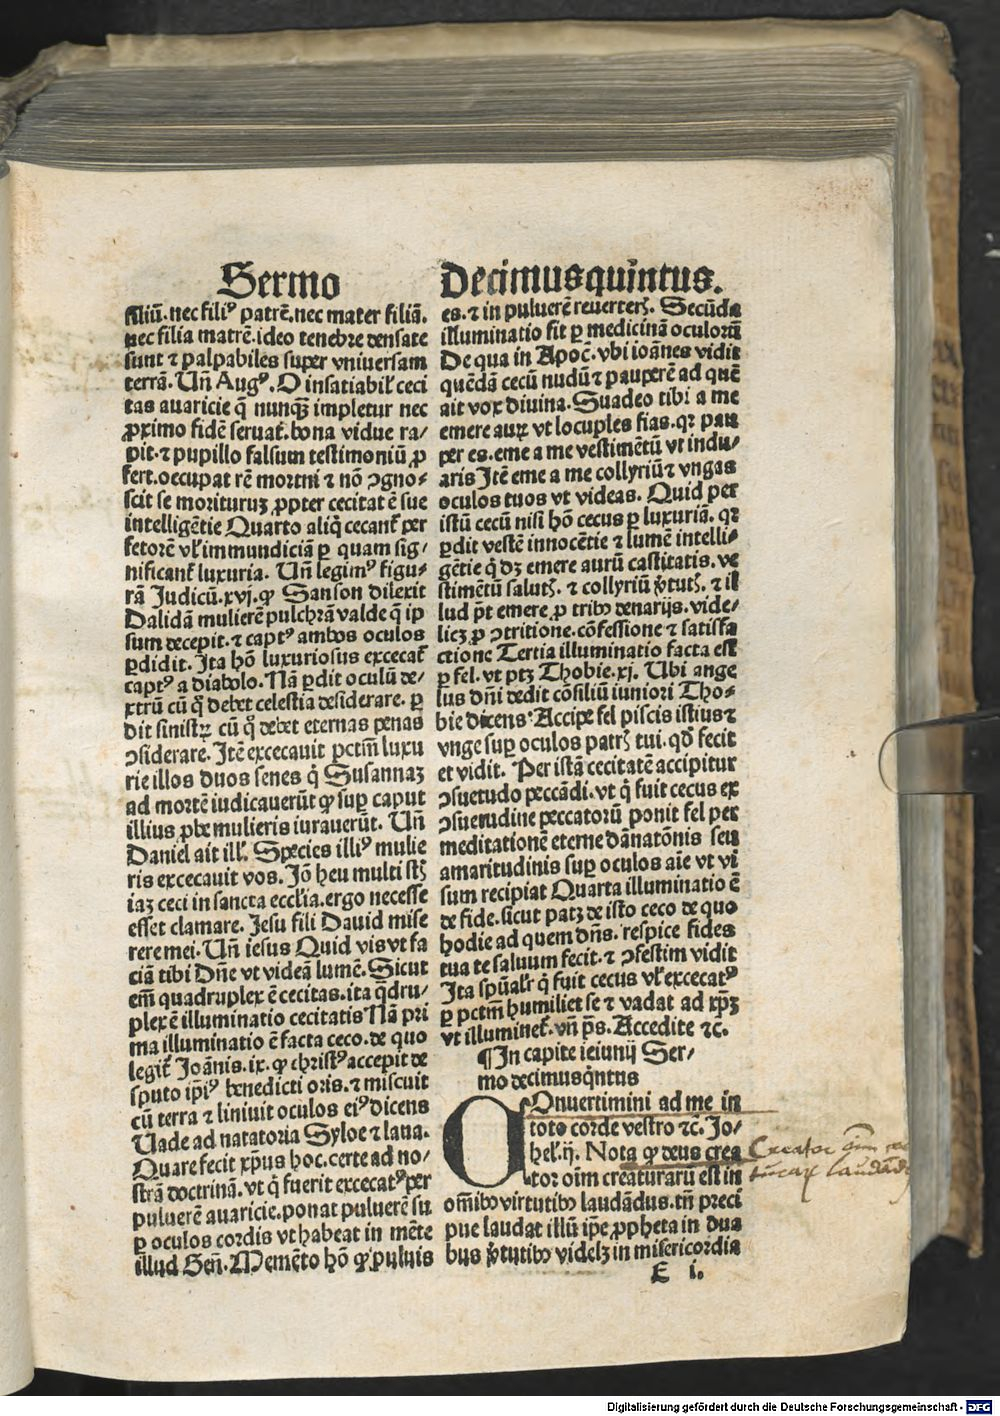 Sermo
Decimusquintus.
filiū. nec filiꝰ patrē. nec mater filiā.
nec filia matrē. ideo tenebre densate
sunt ⁊ palpabiles super vniuersam
terrā. Uñ Augꝰ. O insatiabil' ceci
tas auaricie q̄ nunqȝ impletur nec
ꝓximo fidē seruat. bona vidue ra/
pit. ⁊ pupillo falsum testimoniū ꝓ
fert. occupat rē mortui ⁊ nō ꝯgno-
scit se moriturū ꝓpter cecitatē sue
intelligētie Quarto aliq̄ cecant̄ per
fetorē vl' immundiciā ꝑ quam sig/
nificant̄ luxuria. Uñ legimꝰ figu-
rā Judicū. xvj. ꝙ Sanson dilexit
Dalidā mulierē pulchrā valde q̄ ip
sum decepit. ⁊ captꝰ ambos oculos
ꝑdidit. Ita hō luxuriosus excecat̄
captꝰ a diabolo. Nā ꝑdit oculū de/
xtrū cū q̊ debet celestia desiderare. ꝑ
dit sinistꝝ cū q̊ debet eternas penas
ꝯsiderare. Itē excecauit pctm̄ luxu
rie illos duos senes q̇ Susannaȝ
ad mortē iudicauerūt ꝙ suꝑ caput
illius ꝓbe mulieris iurauerūt. Uñ
Daniel ait ill'. Species illiꝰ mulie
ris excecauit vos. Jō heu multi sūt
iaȝ ceci in sancta eccl'ia. ergo necesse
esset clamare. Jesu fili Dauid mise
rere mei. Uñ iesus Quid vis vt fa
ciā tibi Dñe vt videā lumē. Sicut
em̄ quadruplex ē cecitas. ita q̄dru/
plex ē illuminatio cecitatis Nā pri
ma illuminatio ē facta ceco. de quo
legit̄ Joānis. ix. ꝙ christꝰ accepit de
sputo ip̄iꝰ benedicti oris. ⁊ miscuit
cū terra ⁊ liniuit oculos eiꝰ dicens
Uade ad natatoria Syloe ⁊ laua.
Quare fecit xp̄us hoc. certe ad no/
strā doctrinā. vt q̇ fuerit excecatꝰ per
puluerē auaricie. ponat puluerē su
ꝑ oculos cordis vt habeat in mēte
illud Geñ. Memēto hō ꝙ puluis
es. ⁊ in puluerē reuerterꝭ. Secūda
illuminatio fit ꝑ medicinā oculorū
De qua in Apoc̄. vbi ioānes vidit
quēdā cecū nudū ⁊ pauperē ad quē
ait vox diuina. Suadeo tibi a me
emere auꝝ vt locuples fias. qꝛ pau
per es. eme a me vestimētū vt indu/
aris Itē eme a me collyriū ⁊ vngas
oculos tuos vt videas. Quid per
istū cecū nisi hō cecus ꝑ luxuriā. qꝛ
ꝑdit vestē innocētie ⁊ lumē intelli-
gētie q̇ dȝ emere aurū castitatis. ve
stimētū salutꝭ. ⁊ collyriū v̓tutꝭ. ⁊ il
lud pt̄ emere ꝓ tribꝰ denarijs. vide/
licȝ ꝓ ꝯtritione. cōfessione ⁊ satisfa
ctione Tertia illuminatio facta est
ꝑ fel. vt ptȝ Thobie. xj. Ubi ange
lus dñi dedit cōsiliū iuniori Tho-
bie dicens. Accipe fel piscis istius ⁊
vnge suꝑ oculos patrꝭ tui. qd̄ fecit
et vidit. Per istā cecitatē accipitur
ꝯsuetudo peccādi. vt q̇ fuit cecus ex
ꝯsuetudine peccatorū ponit fel per
meditationē eterne dānatōnis seu
amaritudinis suꝑ oculos aīe vt vi
sum recipiat Quarta illuminatio ē
de fide. sicut patȝ de isto ceco de quo
hodie ad quem dñs. respice fides
tua te saluum fecit. ⁊ ꝯfestim vidit
Ita spūal'r q̇ fuit cecus vl' excecatꝰ
ꝑ pctm̄ humiliet se ⁊ vadat ad xp̄ȝ
vt illuminet̄. vñ ps̄. Accedite ⁊c.
¶In capite ieiunij Ser/
mo decimusqⁱntus
COnuertimini ad me in
toto corde vestro ⁊c. Jo-
hel'. ij. Nota ꝙ deus crea
tor oīm creaturarū est in
om̄ibꝰ virtutibꝰ laudādus. tñ preci
pue laudat illū ip̄e ꝓpheta in dua
bus v̓tutibꝰ videlȝ in misericordia
Creator oīm
laudand
E i.
Digitalisierung gefördert durch die Deutsche Forschungsgemeinschaft - DFG